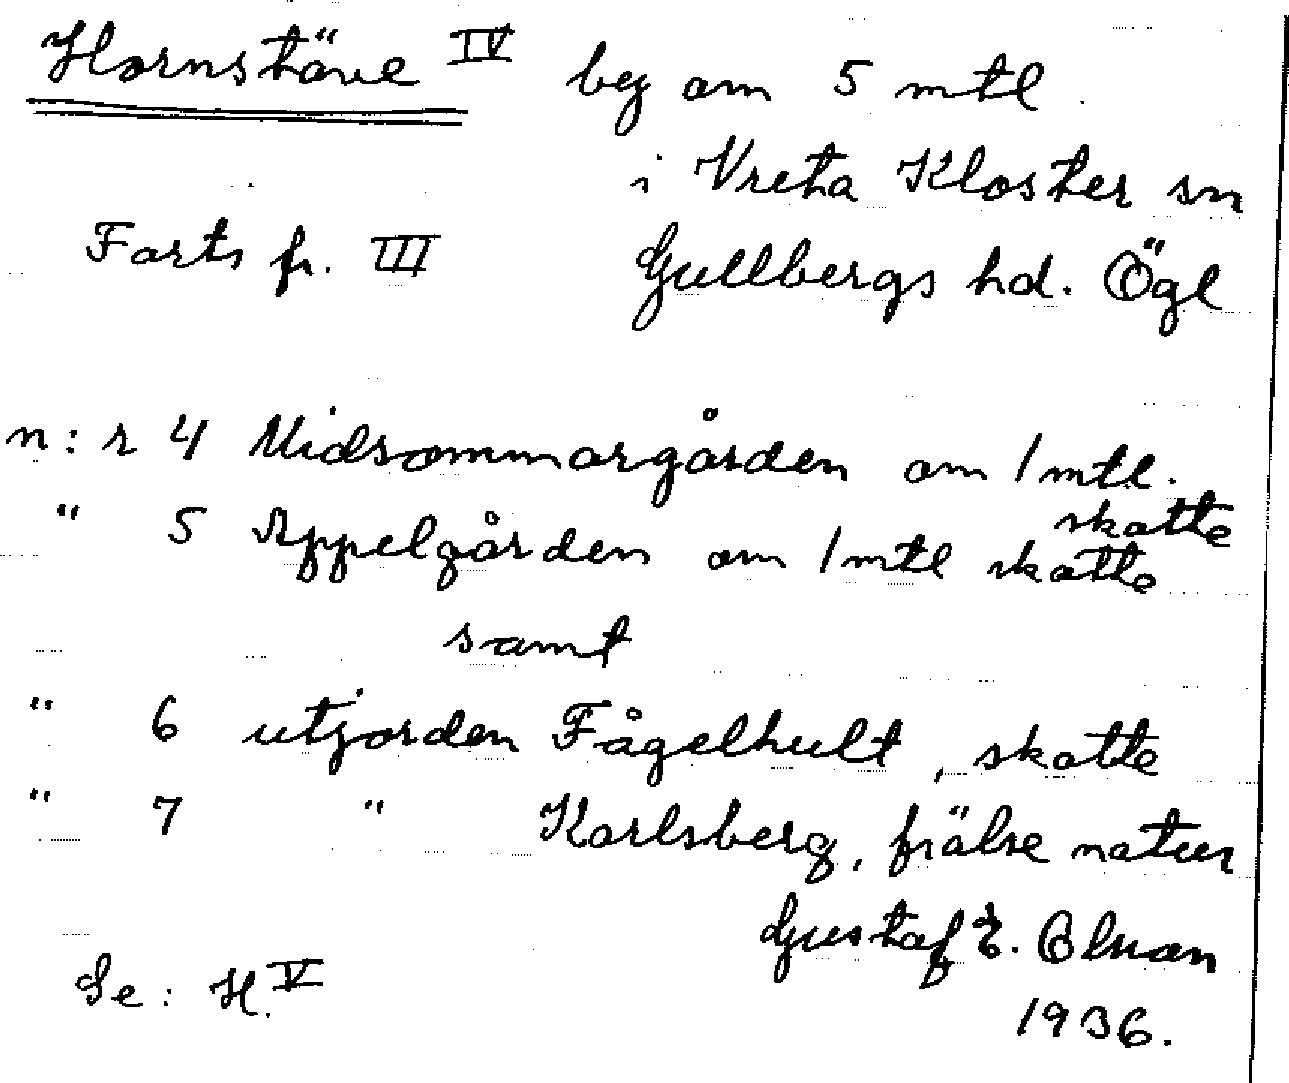 Hornstäve IV beg om 5 mtl.
i Vreta Kloster sn
Forts fr. III Gullbergs hd. Ögl
n:r 4 Midsommargården om 1 mtl. skatte
" 5 Appelgården om 1 mtl skatte
samt
" 6 utjorden Fågelhult, skatte
" 7 " Karlsberg, frälse natur
Gustaf E.
Se: H. V
1936.